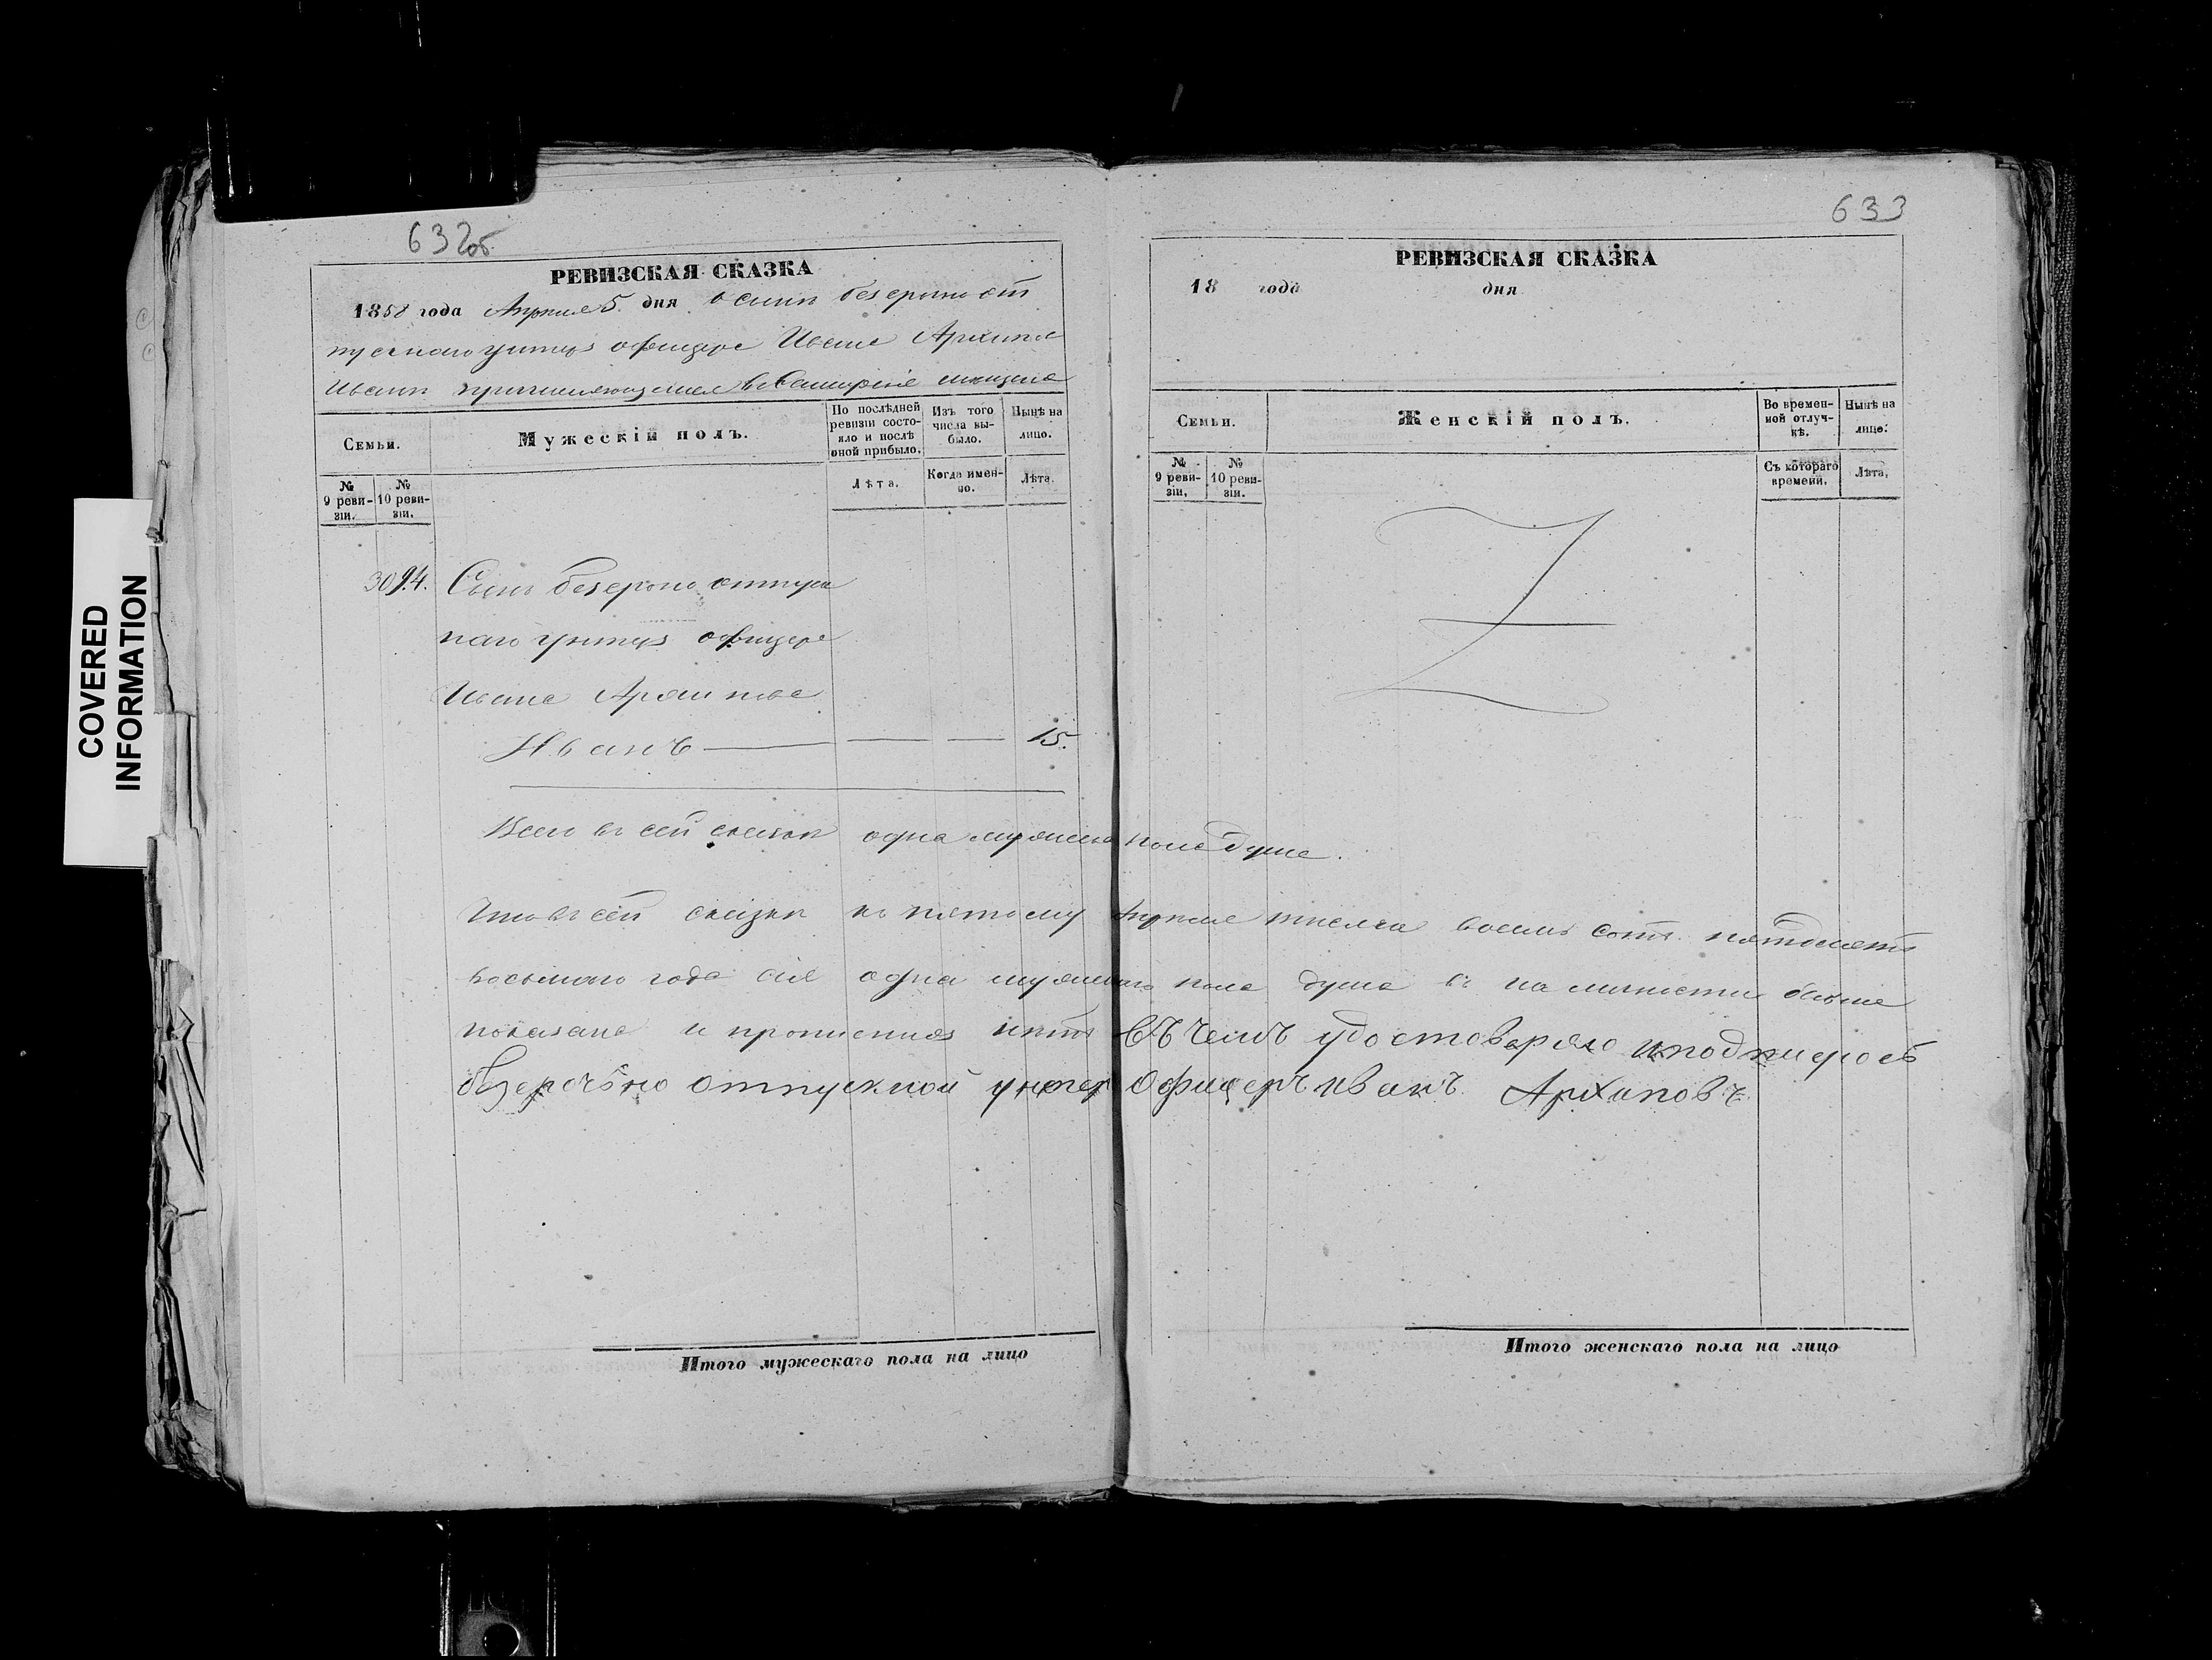 632об.
РЕВИЗСКАЯ СКАЗКА
1858 года Апреля 5 дня о сыне безсрочно от
пускнаго унтеръ офицера Ивана Архипов
Иване причисляющемся въ мещане
Семьи.
Мужескій полъ.
По послѣдней ревизіи состояло и послѣ оной прибыло.
Изъ того числа выбыло.
Нынѣ на лицо.
№ 9 ревизіи.
№ 10 ревизіи.
Лѣта.
Когда именно.
Лѣта.
3094. Сынъ безсрочно отпуск
наго унтеръ офицера
Ивана Архипова
Иванъ 15.
Всего въ сей сказке одна мужеска пола душа.
Что въ сей сказке къ пятому Апреля тысяча восемь сотъ пятьдесятъ
восьмаго года сія одна мужескаго пола душа въ наличности
показана и прописныхъ нетъ въ чемъ удостоверяю и подписуюсь
безсрочьно отпускной унтер Офицеръ иванъ Архиповъ
Итого мужескаго пола на лицо
633
РЕВИЗСКАЯ СКАЗКА
18 года дня
Семьи.
Женскій полъ.
Во временной отлучкѣ.
Нынѣ на лицо.
№ 9 ревизіи.
№ 10 ревизіи.
Съ котораго времени.
Лѣта.
Итого женскаго пола на лицо
COVERED
INFORMATION